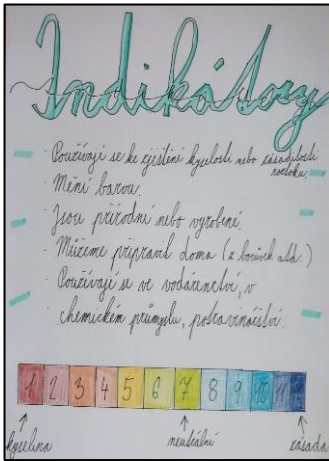 Indikátory
- Používají se ke zjištění kyselosti nebo zásaditosti
roztoku.
- Mění barvu.
- Jsou přírodní nebo vyrobené.
- Můžeme připravit doma (z borůvek atd.)
- Používají se ve vodárenství, v
chemickém průmyslu, potravinářství.
1 2 3 4 5 6 7 8 9 10 11
kyselina neutrální zásada